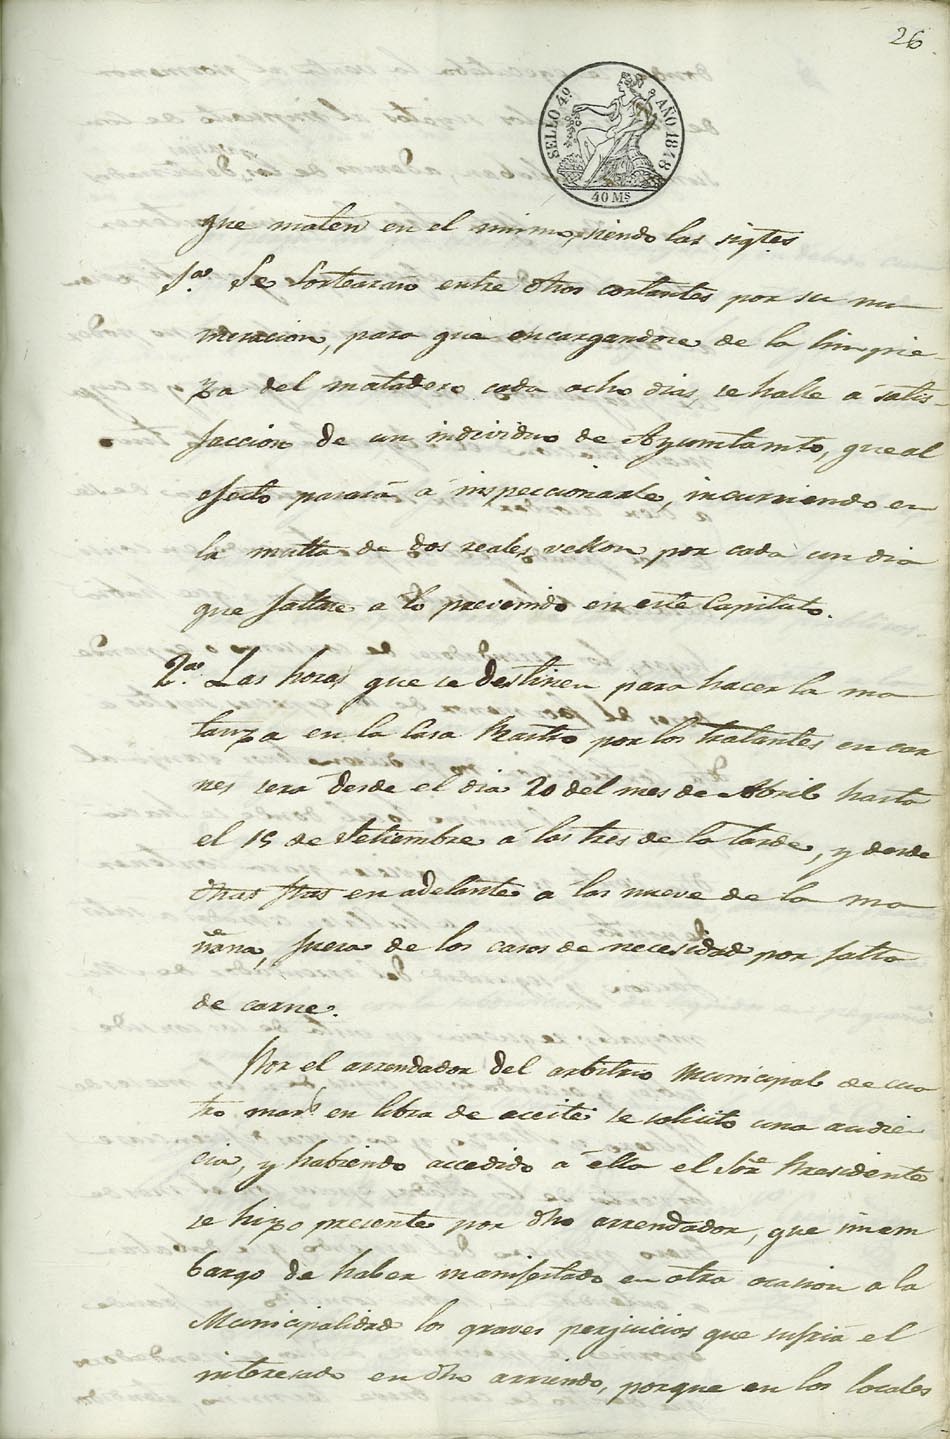 26
SELLO 4º AÑO 1848
40 Ms
que maten en el mismo, siendo las sigtes
1ª. Se sortearan entre dhos cortantes por su nu
meracion, para que encargandose de la limpie-
za del matadero cada ocho dias, se halle á satis-
faccion de un individuo de Ayuntamto, que al
efecto pasará á inspeccionarle, incurriendo en
la multa de dos reales vellon por cada un dia
que faltare a lo prevenido en este Capitulo.
2ª. Las horas que se destinen para hacer la ma
tanza en la Casa Rastro por los tratantes en car
nes será desde el dia 20 del mes de Abril hasta
el 15 de Setiembre á las tres de la tarde, y desde
dhas en adelante a las nueve de la ma
ñana, fuera de los casos de necesidad por falta
de carne.
Por el arrendador del arbitrio Municipal de cua
tro mars en libra de aceite se solicito una audie
cia, y habiendo accedido á ella el Sor Presidente
se hizo presente por dho arrendador, que sin em
bargo de haber manifestado en otra ocasion a la
Municipalidad los graves perjuicios que sufria el
interesado en dho arriendo, porque en los locales